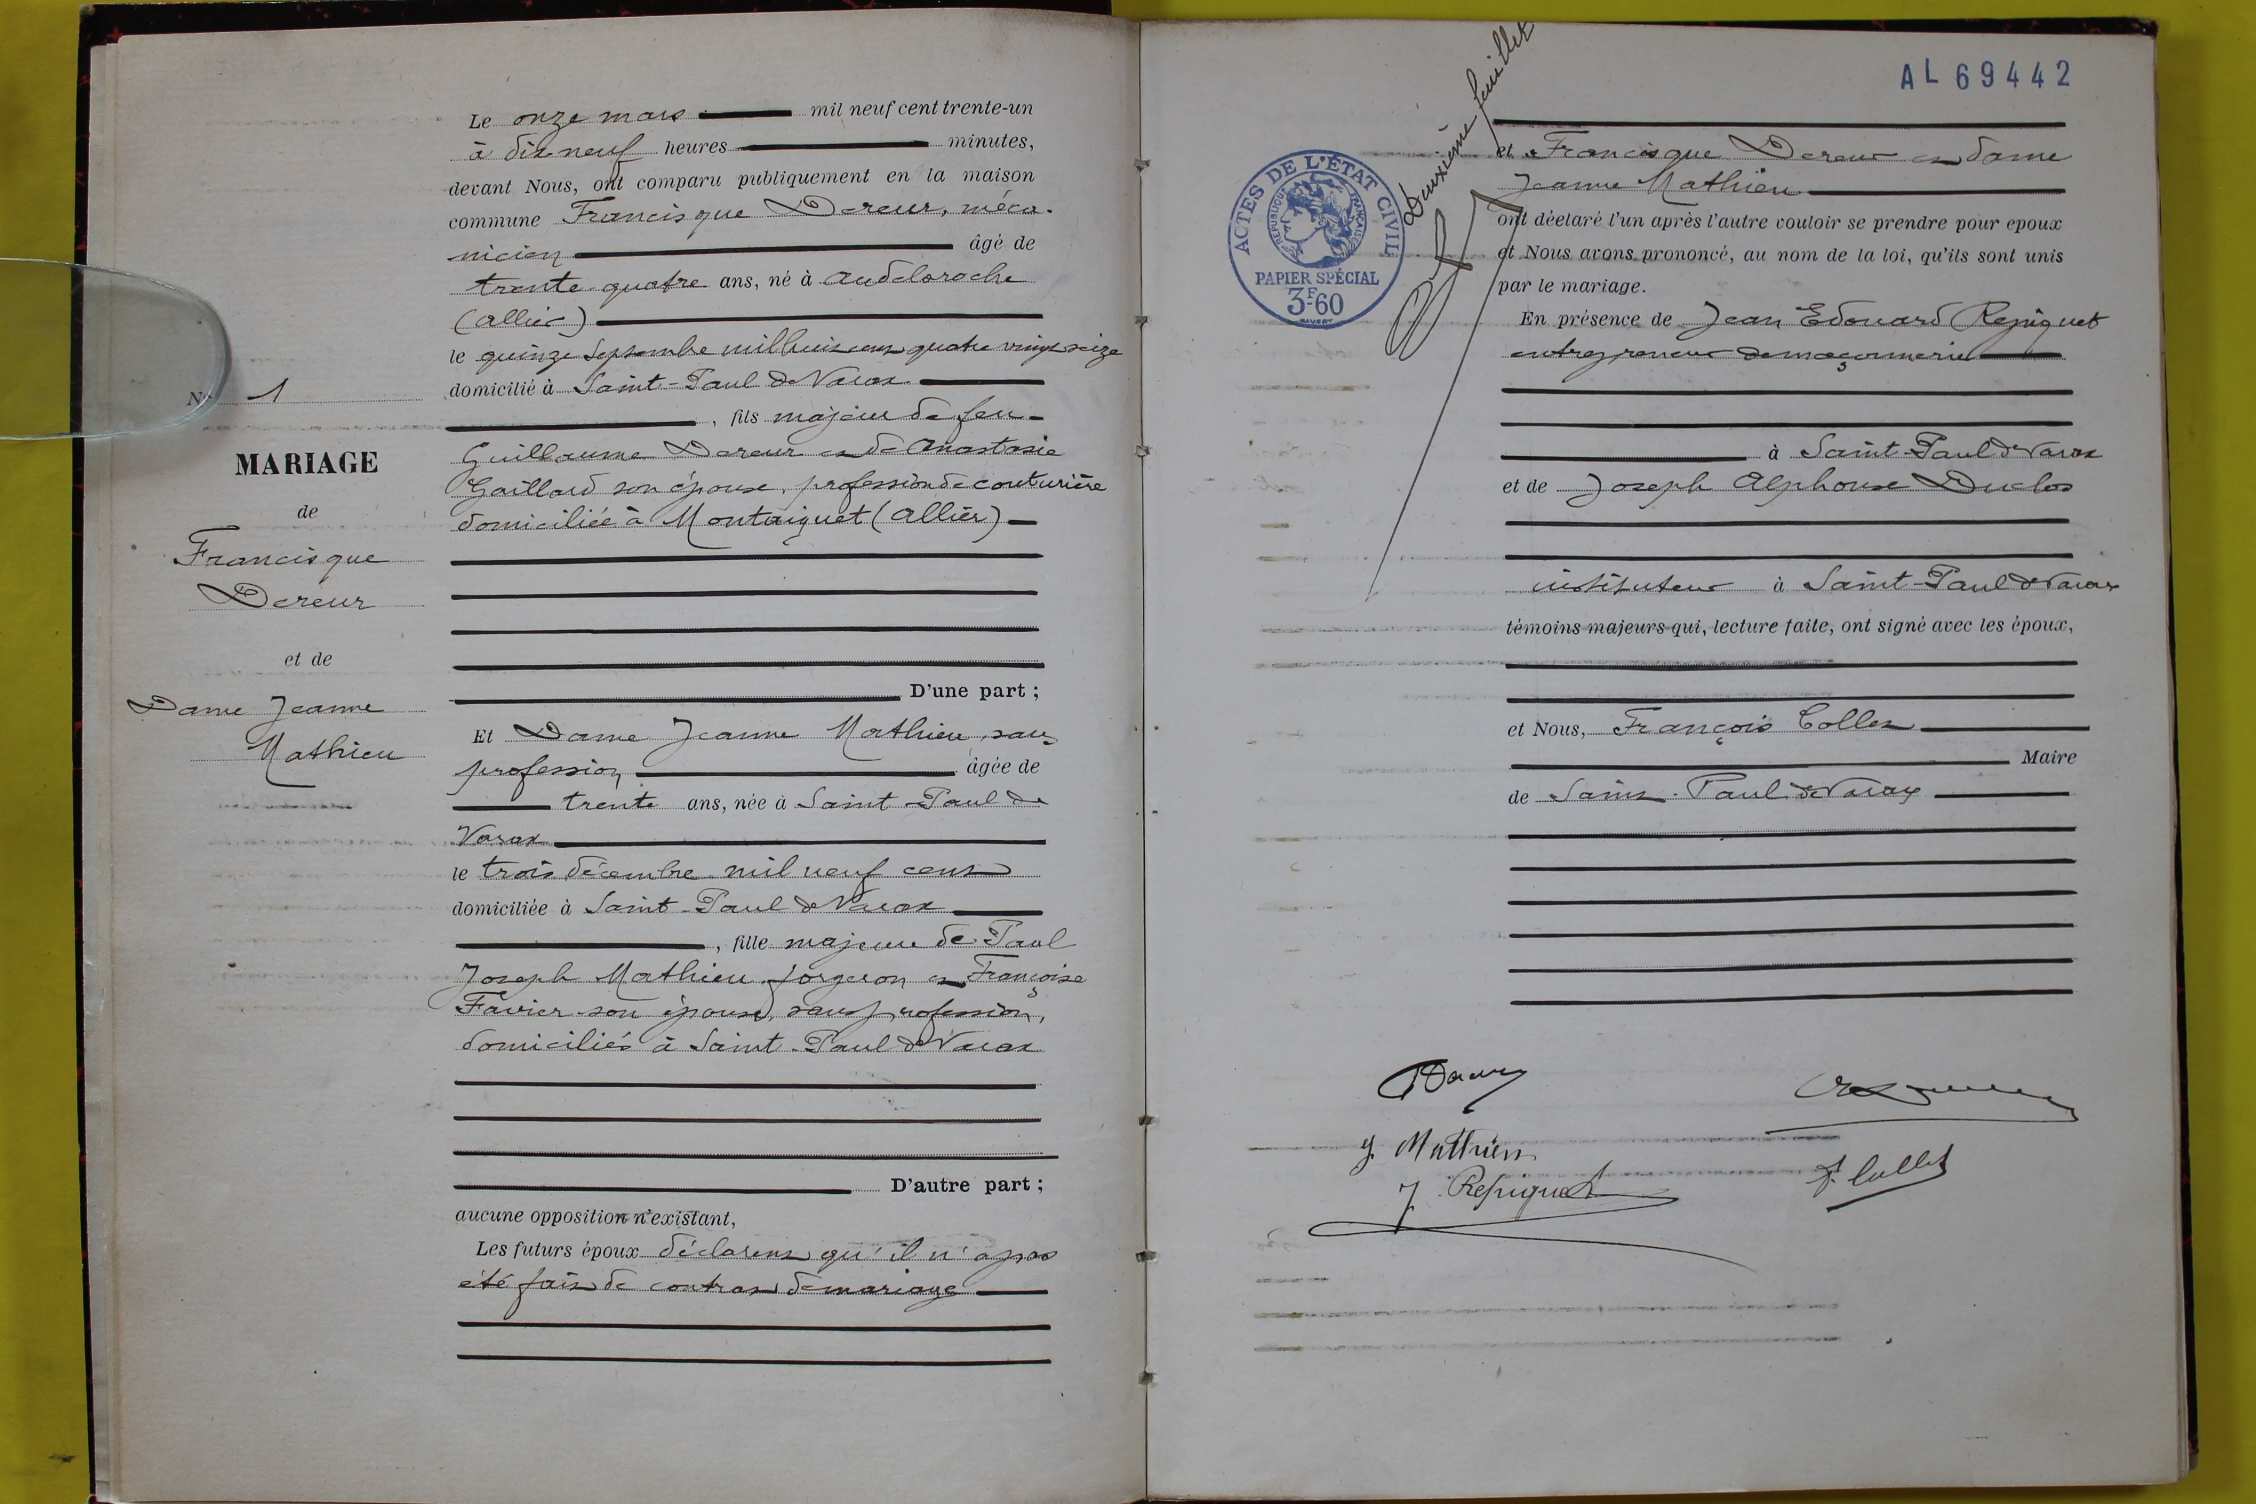 N° 1
MARIAGE
de
Francisque
Dereur
et de
Dame Jeanne
Mathieu
Le onze mars mil neuf cent trente-un
à dix neuf heures minutes,
devant Nous, ont comparu publiquement en la maison
commune Francisque Dereur, méca-
nicien âgé de
trente quatre ans, né à Andelaroche
(Allier)
le quinze septembre mil huit cent quatre vingt seize
domicilié à Saint-Paul de Varax
, fils majeur de feu
Guillaume Dereur et de Anastasie
Gaillard son épouse, profession de couturière
domiciliée à Montaiguet (Allier)
D'une part ;
Et Dame Jeanne Mathieu, sans
profession, âgée de
trente ans, née à Saint Paul de
Varax
le trois décembre mil neuf cent
domiciliée à Saint-Paul de Varax
, fille majeure de Paul
Joseph Mathieu forgeron et Françoise
Favier son épouse, sans profession,
domiciliés à Saint-Paul de Varax
D'autre part ;
aucune opposition n'existant,
Les futurs époux déclarent qu'il n'a pas
été fait de contrat de mariage
AL 69442
Deuxième feuillet
ACTES DE L'ÉTAT CIVIL
RÉPUBLIQUE FRANÇAISE
PAPIER SPÉCIAL
3F-60
et Francisque Dereur et dame
Jeanne Mathieu
ont déclaré l'un après l'autre vouloir se prendre pour epoux
et Nous avons prononcé, au nom de la loi, qu'ils sont unis
par le mariage.
En présence de Jean Edouard Repiquet
entrepreneur de maçonnerie
à Saint-Paul de Varax
et de Joseph Alphonse Duclos
instituteur à Saint-Paul de Varax
témoins majeurs qui, lecture faite, ont signé avec les époux,
et Nous, François Collet
Maire
de Saint-Paul de Varax
J. Mathieu
J. Repiquet
F. Collet